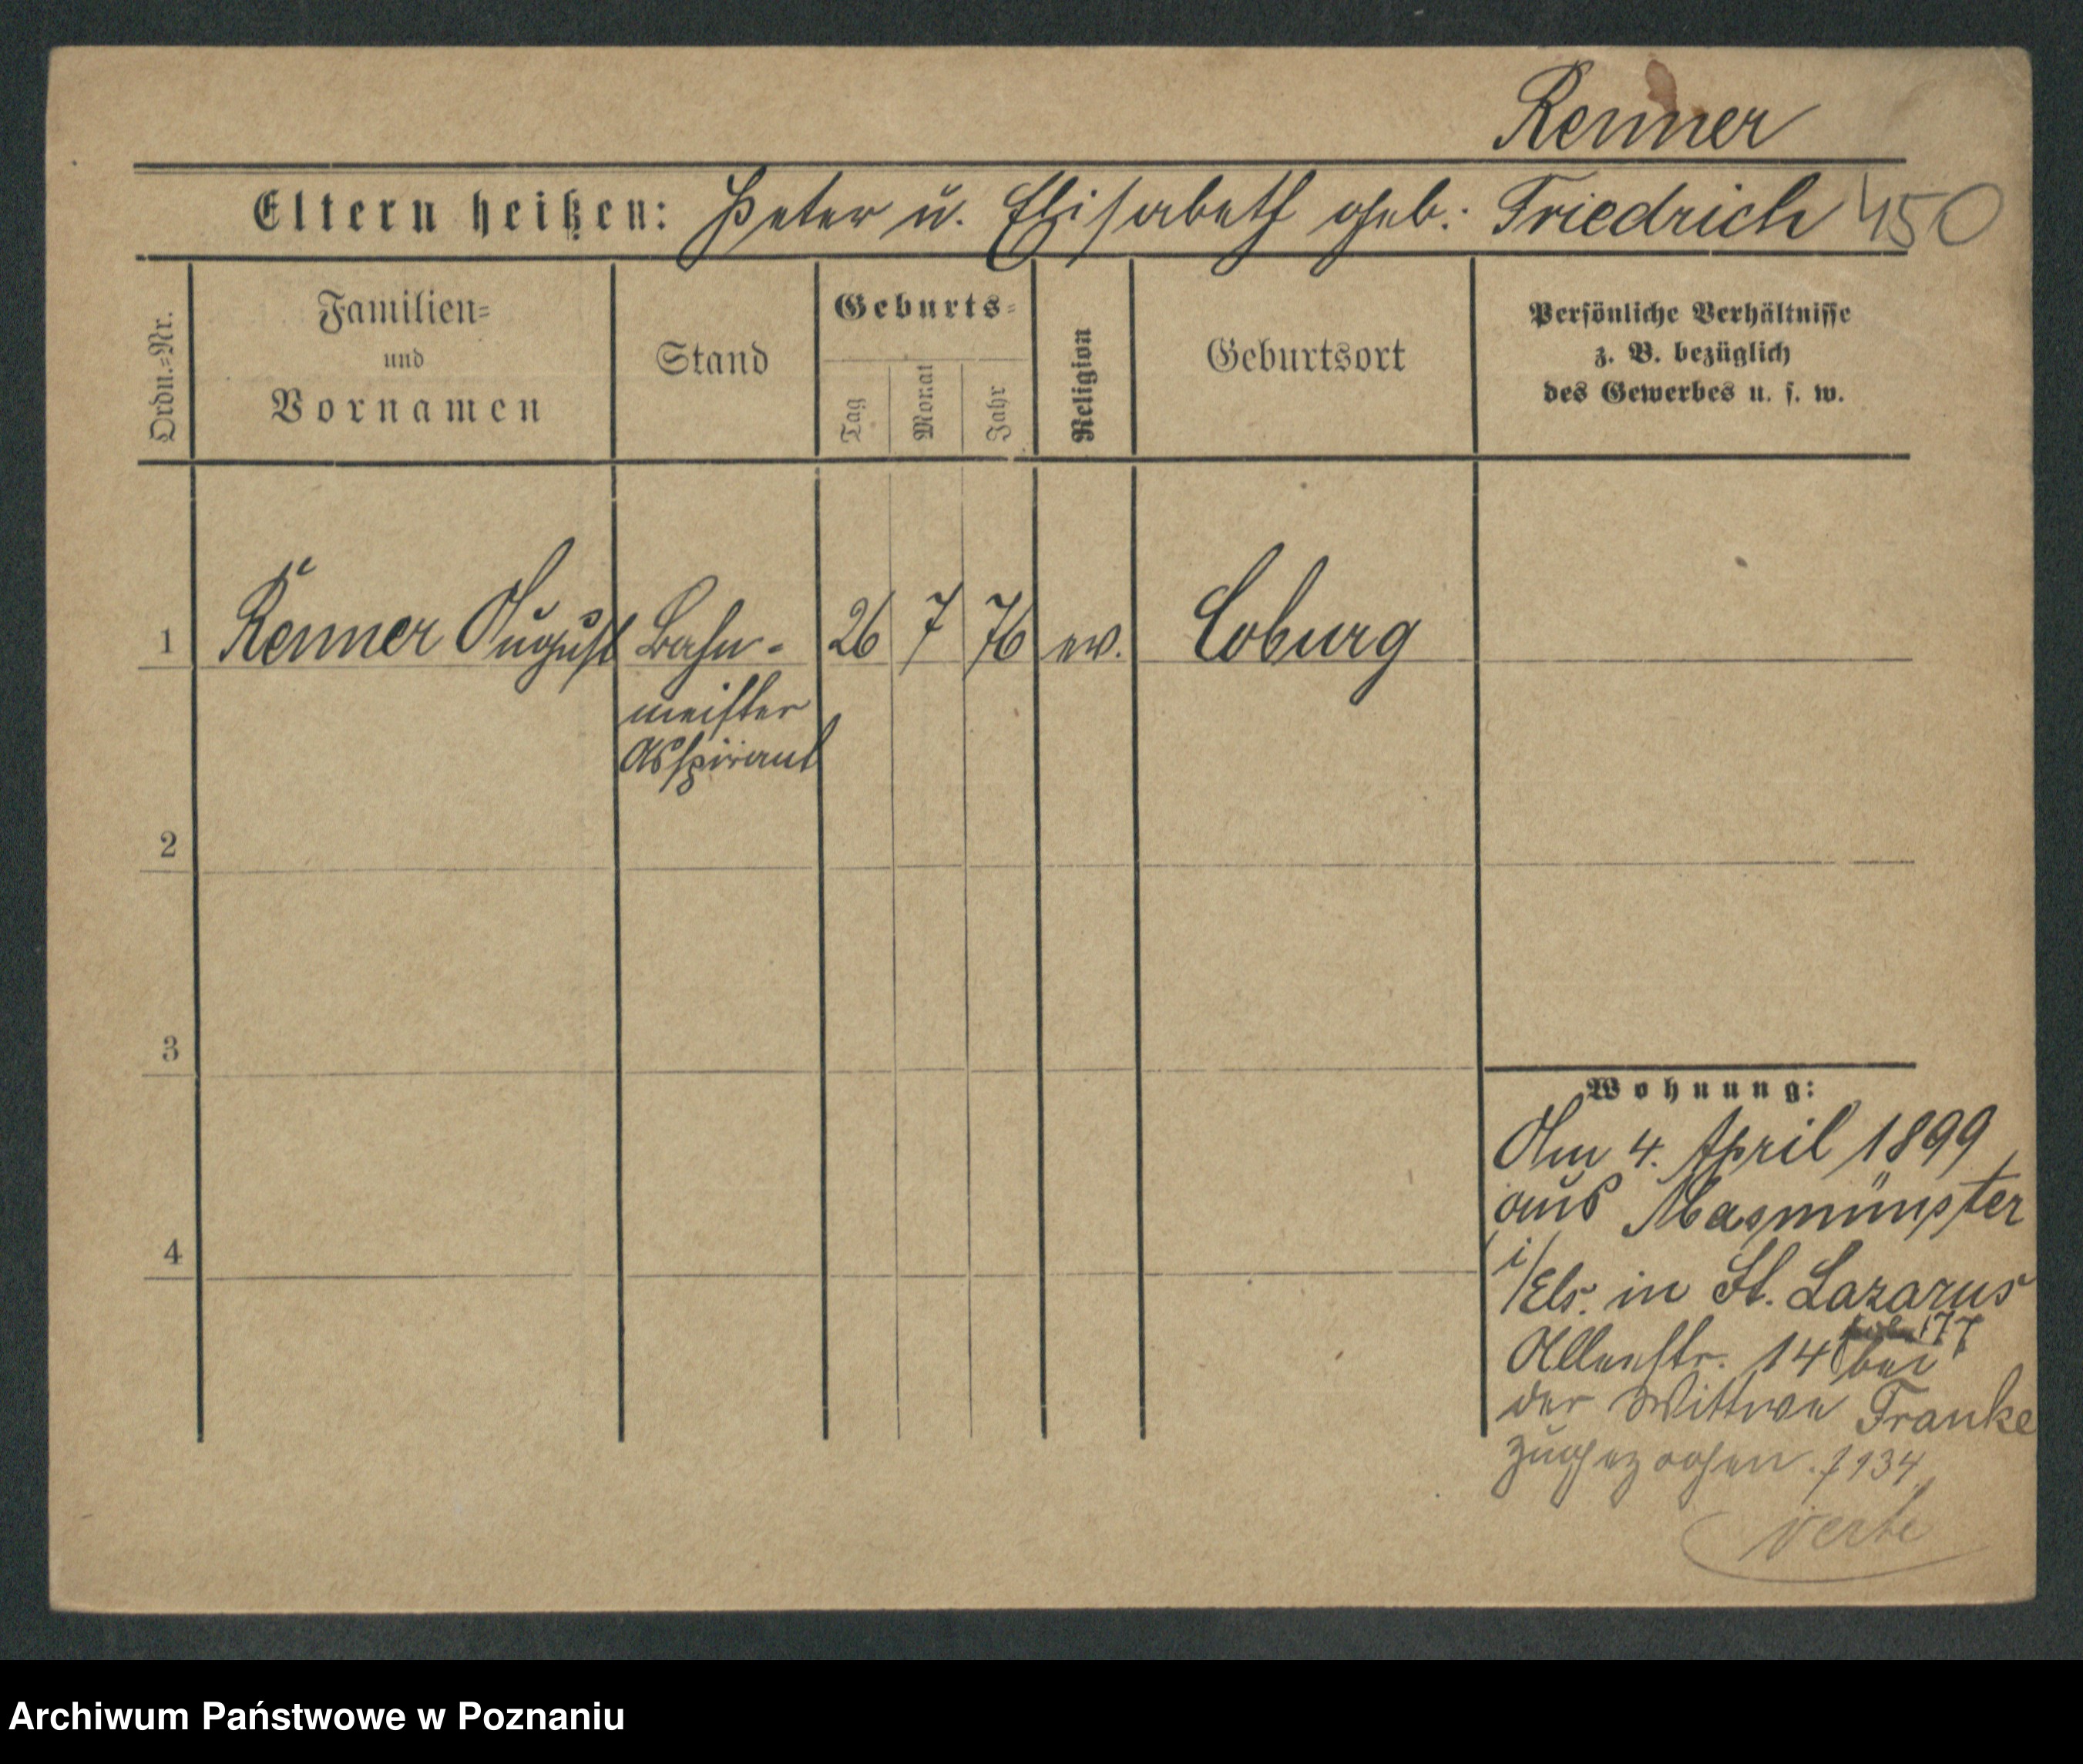 Renner
Eltern heißen: Peter u. Elisabeth geb. Friedrich 450
Ordn.=Nr.
Familien=
und
Vornamen
Stand
Geburts=
Tag
Monat
Jahr
Religion
Geburtsort
Persönliche Verhältnisse
z. B. bezüglich
des Gewerbes u. s. w.
1 Renner August Bahn- 26 7 76 ev. Coburg
meister
Asspirant
2
3
4
Wohnung:
Am 4. April 1899
aus Masmünster
i/Els. in St. Lazarus
177
Allenstr. 14 bei
der Wittwe Franke
zugezogen. f 134
verte
Archiwum Państwowe w Poznaniu